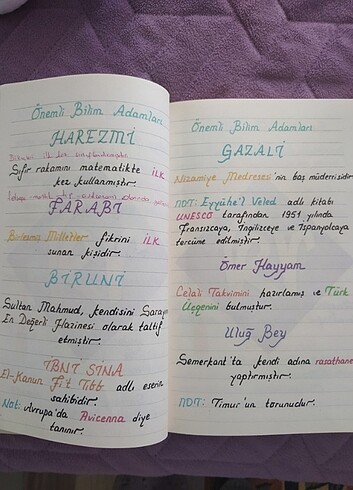 Önemli Bilim Adamları
HAREZMİ
Bilimleri ilk kez sınıflandırmıştır.
Sıfır rakamını matematikte İLK
kez kullanmıştır.
FARABİ
Birleşmiş Milletler fikrini İLK
sunan kişidir.
BİRUNİ
Sultan Mahmud, kendisini Sarayın
En Değerli Hazinesi olarak taltif
etmiştir.
İBNİ SİNA
El-Kanun Fi't Tıbb adlı eserin
sahibidir.
Not: Avrupa'da Avicenna diye
tanınır.
Önemli Bilim Adamları
GAZALİ
Nizamiye Medresesi'nin baş müderrisidir.
NOT: Eyyühe'l Veled adlı kitabı
UNESCO tarafından 1951 yılında
Fransızcaya, İngilizceye ve İspanyolcaya
tercüme edilmiştir.
Ömer Hayyam
Celali Takvimini hazırlamış ve Türk
Üçgenini bulmuştur.
Uluğ Bey
Semerkant'ta kendi adına rasathane
yaptırmıştır.
NOT: Timur'un torunudur.